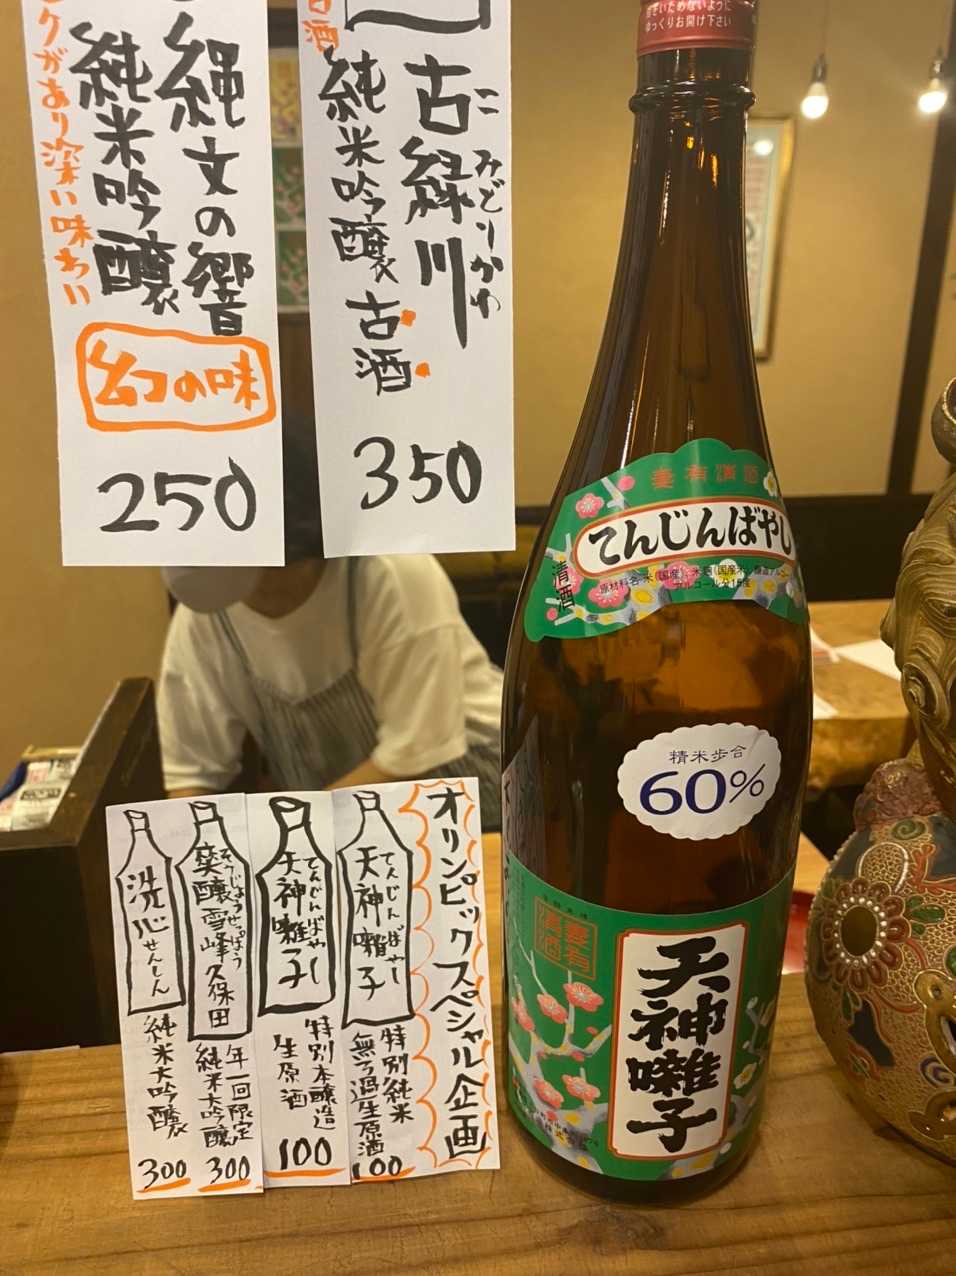 古緑川
こ みどりかわ
純米吟醸古酒
350
縄文の響
純米吟醸
クがあり深い味わい
幻の味
250
ゆっくりお開け下さい
清酒
てんじんばやし
精米歩合
60%
清酒
天神囃子
オリンピックスペシャル企画
天神囃子
てんじんばやし
特別純米
無ろ過生原酒
100
天神囃子
てんじんばやし
特別本醸造
生原酒
100
爽醸雪峰久保田
そうじょうせっぽう
年一回限定
純米大吟醸
300
洗心
せんしん
純米大吟醸
300